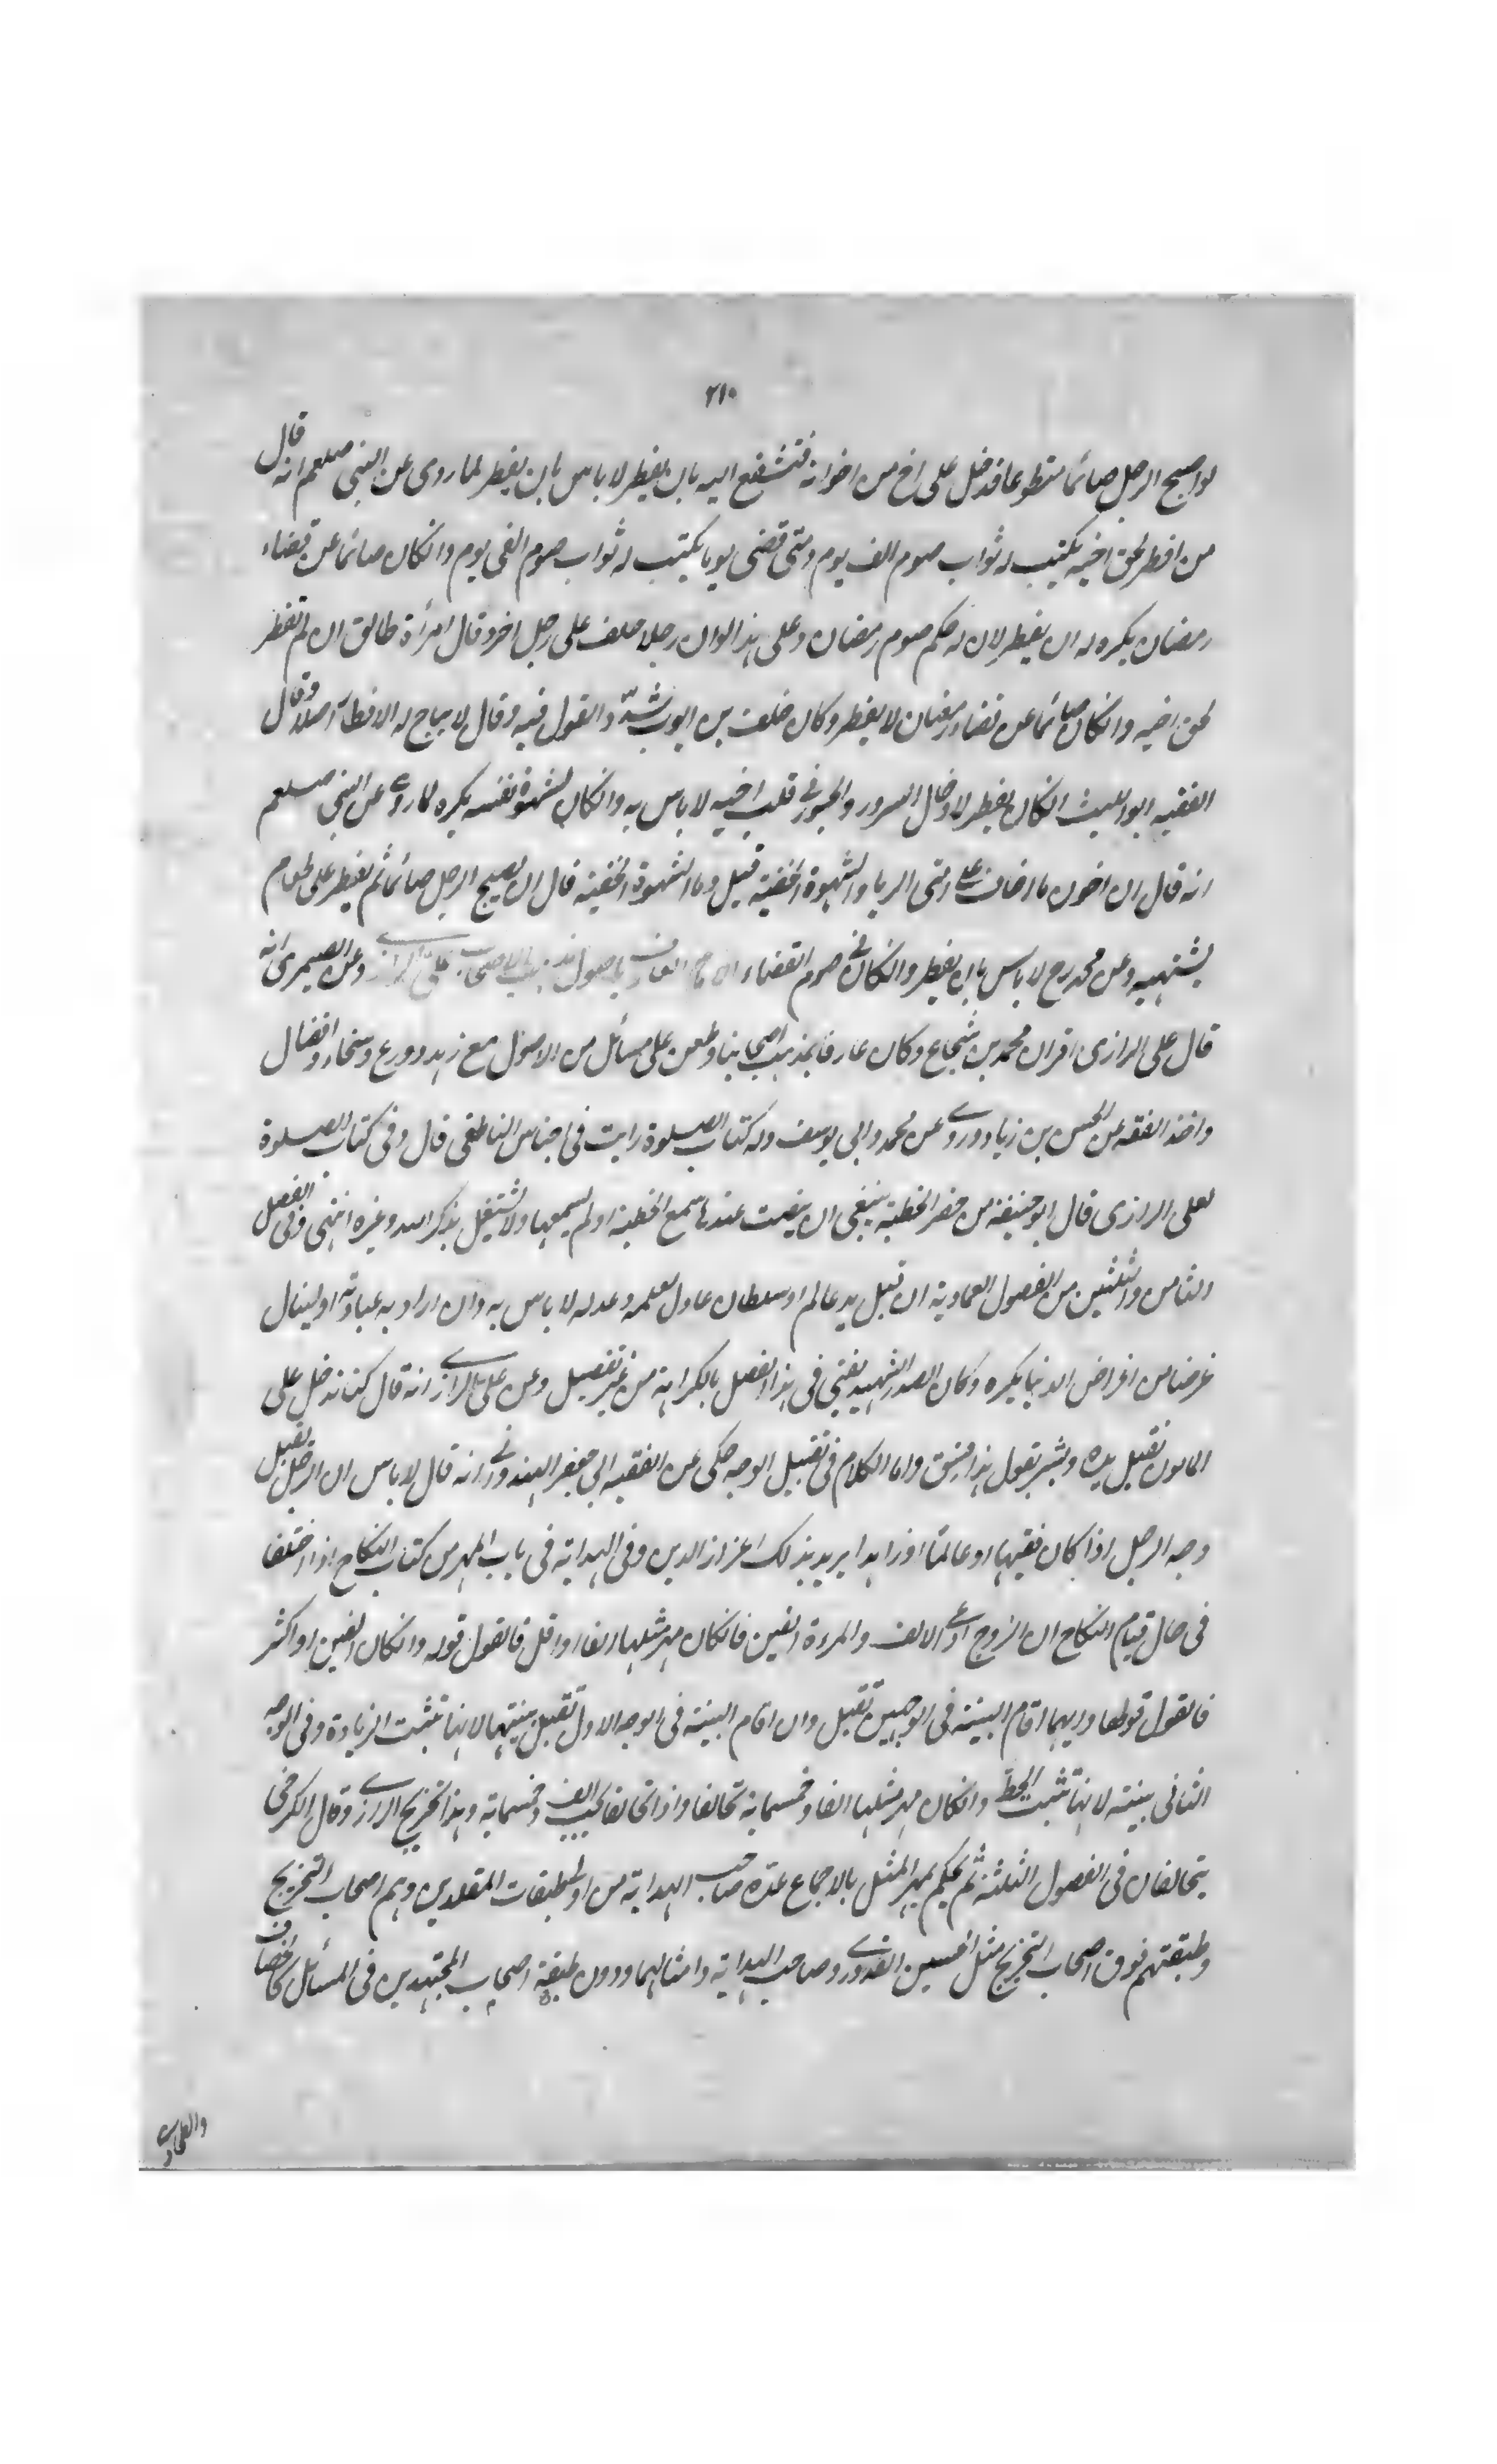 ٢١٠
لو اصبح الرجل صائما متطوعا فدخل على اخ من اخوانه فتشفع اليه بان يفطر لا باس بان يفطر لما روى عن النبى صلعم انه قال
من افطر لحق اخيه يكتب له ثواب صوم الف يوم ومتى قضى يوما يكتب له ثواب صوم الفى يوم وانكان صائما عن قضاء
رمضان يكره له ان يفطر لان له حكم صوم رمضان وعلى هذا لو ان رجلا حلف على رجل اخر وقال امرأة طالق ان لم تفطر
لحق اخيه وانكان صائما عن قضاء رمضان لا يفطر وكان خلف بن ايوب شدّد القول فيه وقال لا يباح له الافطار اصلا وقال
الفقيه ابو الليث انكان يفطر لادخال السرور والحبور فى قلب اخيه لا باس به وانكان لشهوة نفسه يكره لما روى عن النبى صلعم
انه قال ان اخوف ما اخاف على امتى الريا والشهوة الخفية قيل وما الشهوة الخفية قال ان يصبح الرجل صائما ثم يفطر على طعام
يشتهيه وعن محمد رح لا باس بان يفطر وانكان فى صوم القضاء على الرازى وعن الصيمرى انه
قال على الرازى اقران محمد بن شجاع وكان عارفا بمذهب اصحابنا وطعن على مسائل من الاصول مع زهد وورع وسخاء وافضال
واخذ الفقه عن الحسن بن زياد وروى عن محمد وابى يوسف وله كتاب الصلوة رايت فى اجناس الناطفى قال وفى كتاب الصلوة
لعلى الرازى قال ابو حنيفة من حضر الخطبة ينبغى ان ينصت عندنا سمع الخطبة او لم يسمعها ولا يشتغل بذكر الله وغيره انتهى وفى الفصل
الثامن والثلثين من الفصول العمادية ان قبل يد عالم او سلطان عادل لعلمه وعدله لا باس به وان اراد به عبادته او لينال
غرضا من اغراض الدنيا يكره وكان الصدر الشهيد يفتى فى هذا الفصل بالكراهة من غير تفصيل وعن على الرازى انه قال كنا ندخل على
المامون نقبل يده وبشر يقول هذا فسق واما الكلام فى تقبيل الوجه حكى عن الفقيه ابى جعفر الهندوانى انه قال لا باس ان الرجل يقبل
وجه الرجل اذا كان فقيها او عالما او زاهدا يريد بذلك اعزاز الدين وفى الهداية فى باب المهر من كتاب النكاح اذا اختلفا
فى حال قيام النكاح ان الزوج ادعى الالف والمرءة الفين فانكان مهر مثلها الفا او اقل فالقول قوله وانكان الفين او اكثر
فالقول قولها وايهما اقام البينة فى الوجهين تقبل وان اقام البينة فى الوجه الاول تقبل بينتها لانها تثبت الزيادة وفى الوجه
الثانى بينته لانها تثبت الحط وانكان مهر مثلها الفا وخمسماية تحالفا واذا تحالفا يجب الف وخمسماية وهذا تخريج الرازى وقال الكرخى
يتحالفان فى الفصول الثلثة ثم يحكم بمهر المثل بالاجماع عدّه صاحب الهداية من اولى طبقات المقلدين وهم اصحاب التخريج
وطبقتهم فوق اصحاب الترجيح مثل الحسين القدورى وصاحب الهداية وامثالهما ودون طبقة اصحاب المجتهدين فى المسائل كالخصاف
والطحاوى